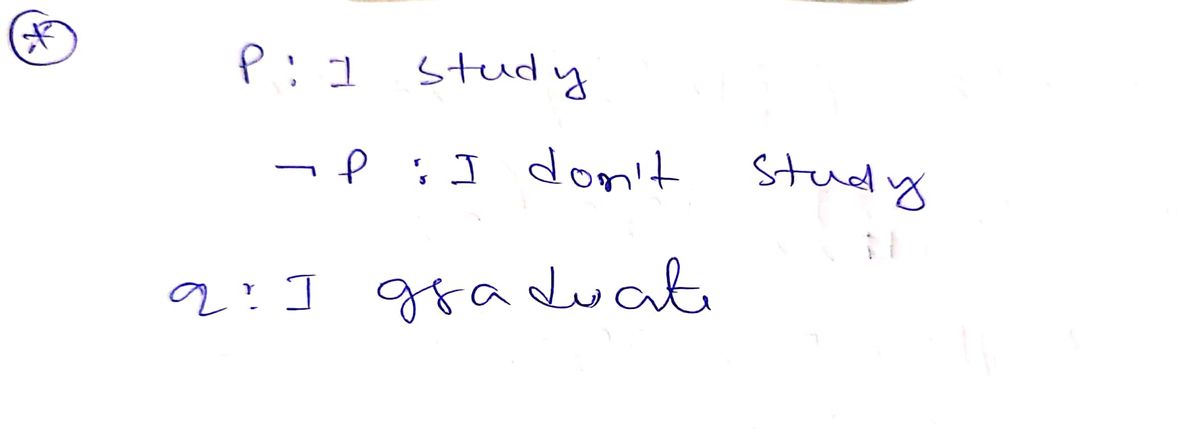 *
P : I study
¬ P : I don't study
q : I graduate